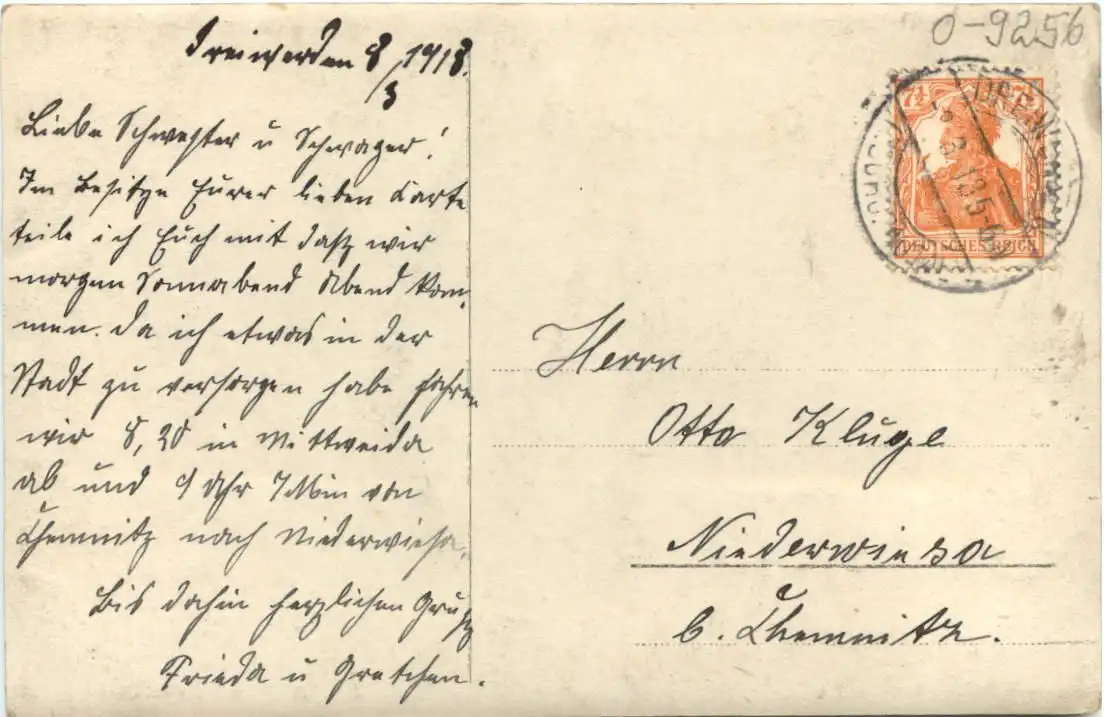 O-9256
Dreiwerden 8/3 1918.
Liebe Schwester u Schwager!
Im Besitze Eurer lieben Karte
teile ich Euch mit dasz wir
morgen Sonnabend Abend kom-
men. Da ich etwas in der
Stadt zu versorgen habe fahren
wir 8,20 in Mittweida
ab und 9 Uhr 7 Min von
Chemnitz nach Niederwiesa.
Bis dahin herzlichen Grusz
Frieda u Gretchen.
7½ 7½
DEUTSCHES REICH
DREIWERDEN
8.3.18.5-6
Herrn
Otto Kluge
Niederwiesa
b. Chemnitz.